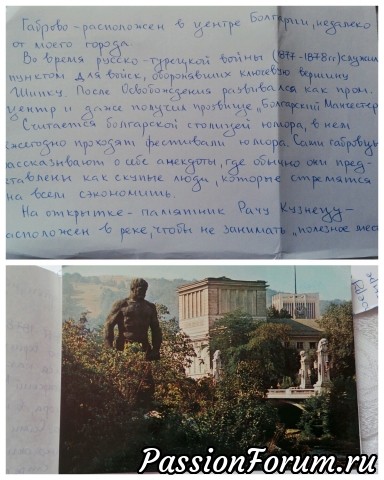 Габрово - расположен в центре Болгарии, недалеко
от моего города.
Во время русско-турецкой войны (1877-1878гг) служил
пунктом для войск, оборонявших ключевую вершину
Шипку. После Освобождения развивался как пром.
центр и даже получил прозвище „Болгарский Манчестер
Считается болгарской столицей юмора, в нем
ежегодно проходят фестивали юмора. Сами габровцы
рассказывают о себе анекдоты, где обычно они пред-
ставлены как скупые люди, которые стремятся
на всем сэкономить.
На открытке - памятник Рачу Кузнецу -
расположен в реке, чтобы не занимать „полезное мес
PassionForum.ru